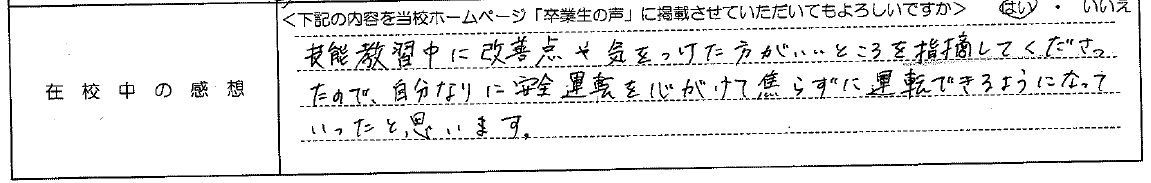 <下記の内容を当校ホームページ「卒業生の声」に掲載させていただいてもよろしいですか> はい ・ いいえ
在校中の感想
技能教習中に改善点や気をつけた方がいいところを指摘してくださっ
たので、自分なりに安全運転を心がけて焦らずに運転できるようになって
いったと思います。